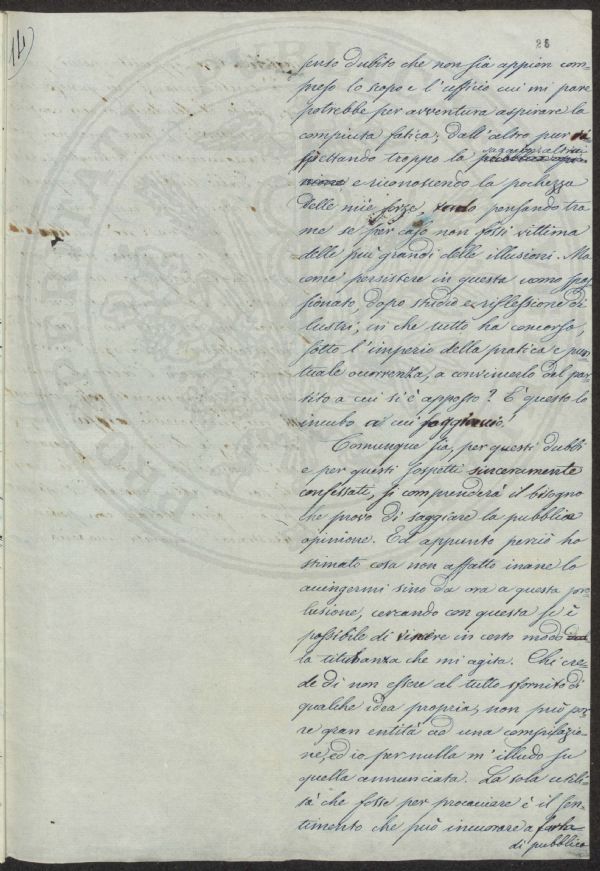 14)
25
penso dubito che non sia appien com-
preso lo scopo e l'ufficio cui mi pare
potrebbe per avventura aspirare la
compiuta fatica; dall'altro pur ri-
spettando troppo la pubblica opi-
nione e riconoscendo la pochezza
delle mie forze, vonto pensando tra
me se per caso non fossi vittima
delle più grandi delle illusioni. Ma
come persistere in questa uomo spas-
sionato, dopo studio e riflessione di
lustri, in che tutto ha concorso,
sotto l'imperio della pratica e pun-
tuale occorrenza, a convincerlo del par-
tito a cui si è apposto? È questo lo
incubo a cui soggiaccio.
Comunque sia, per questi dubbi
e per questi sospetti sinceramente
confessati, si comprenderà il bisogno
che provo di saggiare la pubblica
opinione. Ed appunto perciò ho
stimato cosa non affatto inane lo
accingermi sino da ora a questa pro-
lusione, cercando con questa se è
possibile di vincere in certo modo
la titubanza che mi agita. Chi cre-
de di non essere al tutto sfornito di
qualche idea propria, non può por-
re gran entità ad una compilazio-
ne, ed io per nulla m'illudo su
quella annunciata. La sola utili-
tà che fosse per procacciare è il sen-
timento che può incuorare a
di pubblico